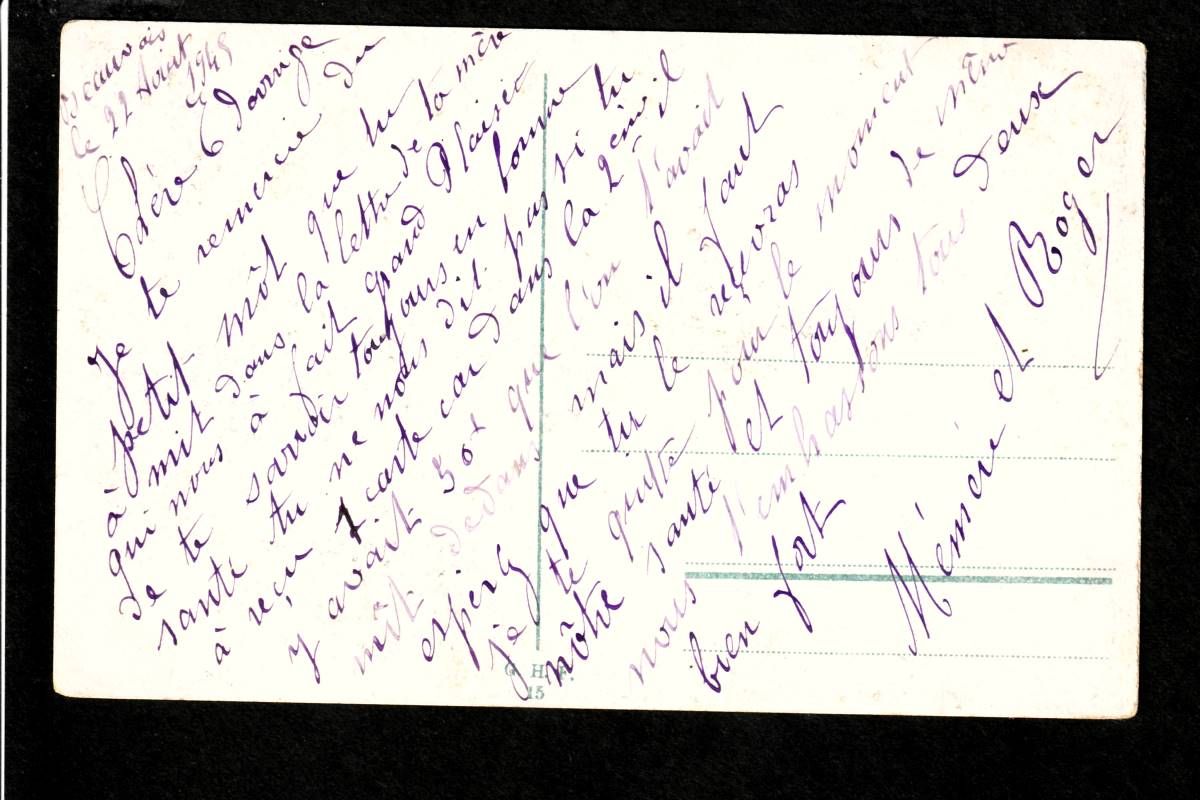 le 22 Août
1945
Chère Edwige
Je te remercie du
petit môt que tu
à mit dans la lettre de ta mère
qui nous à fait grand Plaisir
de te savoir toujours en bonne
santé tu ne nous dit pas si tu
à reçu 1 carte car dans la 2em il
y avait 50f que l'on t'avait
mit dedans mais il faut
espérer que tu le reçevras
je te quitte pour le moment
nôtre santé et toujours de même
nous t'embrassons tous deux
bien fort
Mémère et Roger
G. H. F.
15